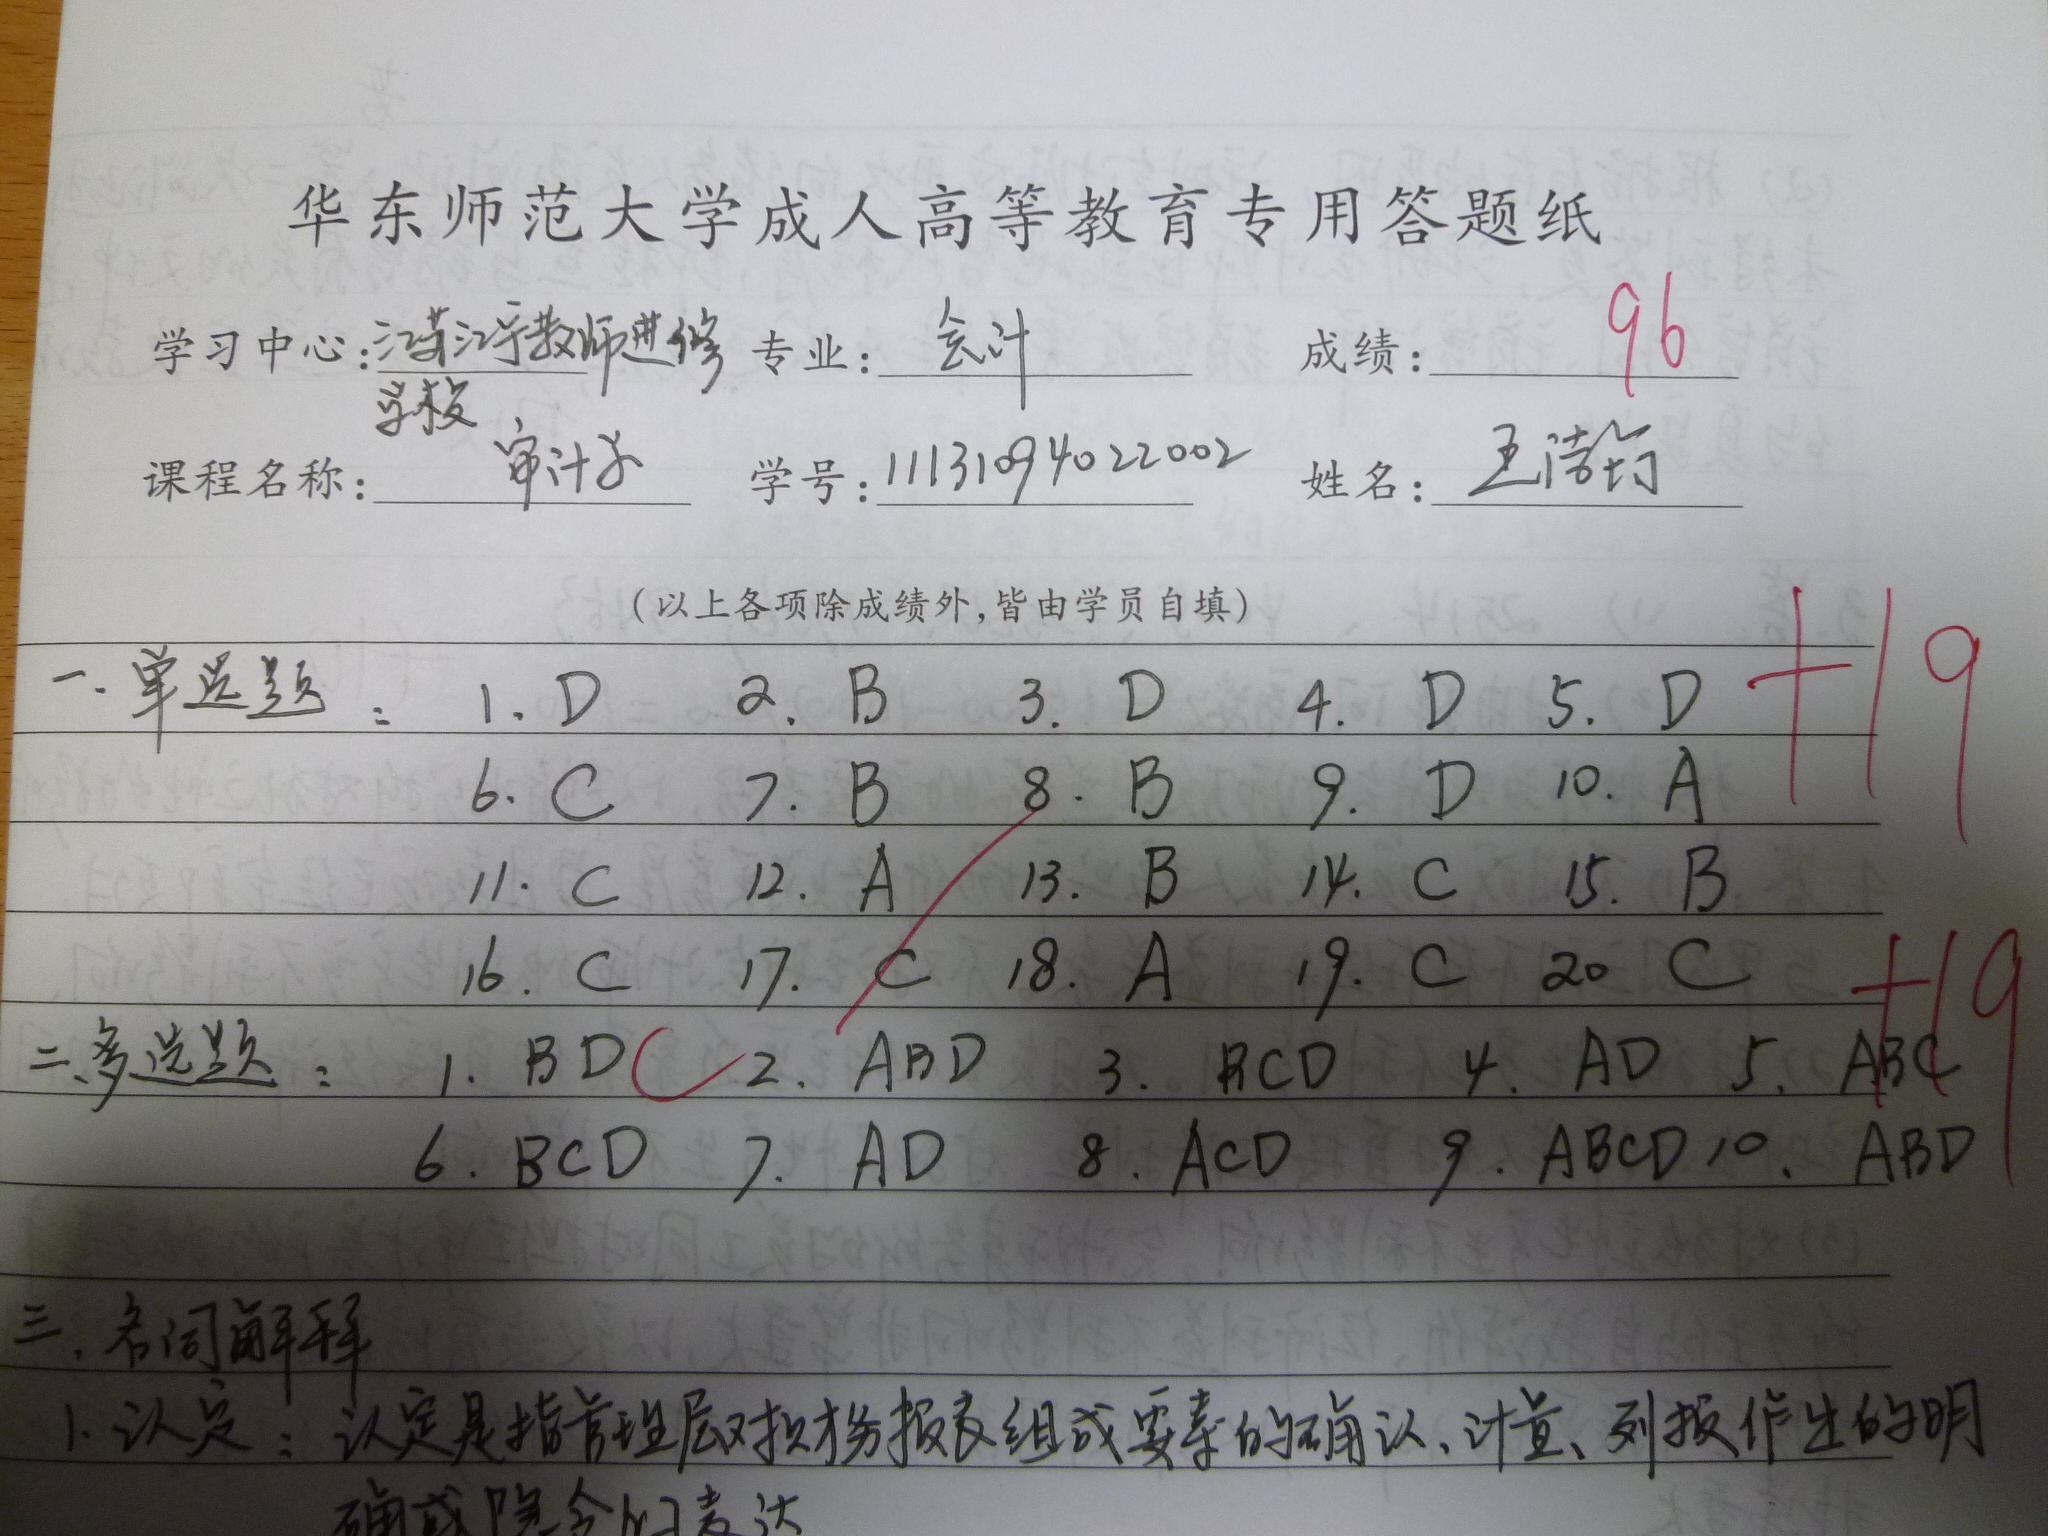 华东师范大学成人高等教育专用答题纸
学习中心:江苏江宁教师进修学校 专业:会计 成绩:96
课程名称:审计学 学号:11131094022002 姓名:王浩筠
(以上各项除成绩外,皆由学员自填)
一.单选题: 1. D 2. B 3. D 4. D 5. D +19
6. C 7. B 8. B 9. D 10. A
11. C 12. A 13. B 14. C 15. B
16. C 17. C 18. A 19. C 20 C +19
二、多选题: 1. BDC 2. ABD 3. BCD 4. AD 5. ABC
6. BCD 7. AD 8. ACD 9. ABCD 10. ABD
三.名词解释
1.认定:认定是指管理层对财务报表组成要素的确认、计量、列报作出的明
确或隐含的表达